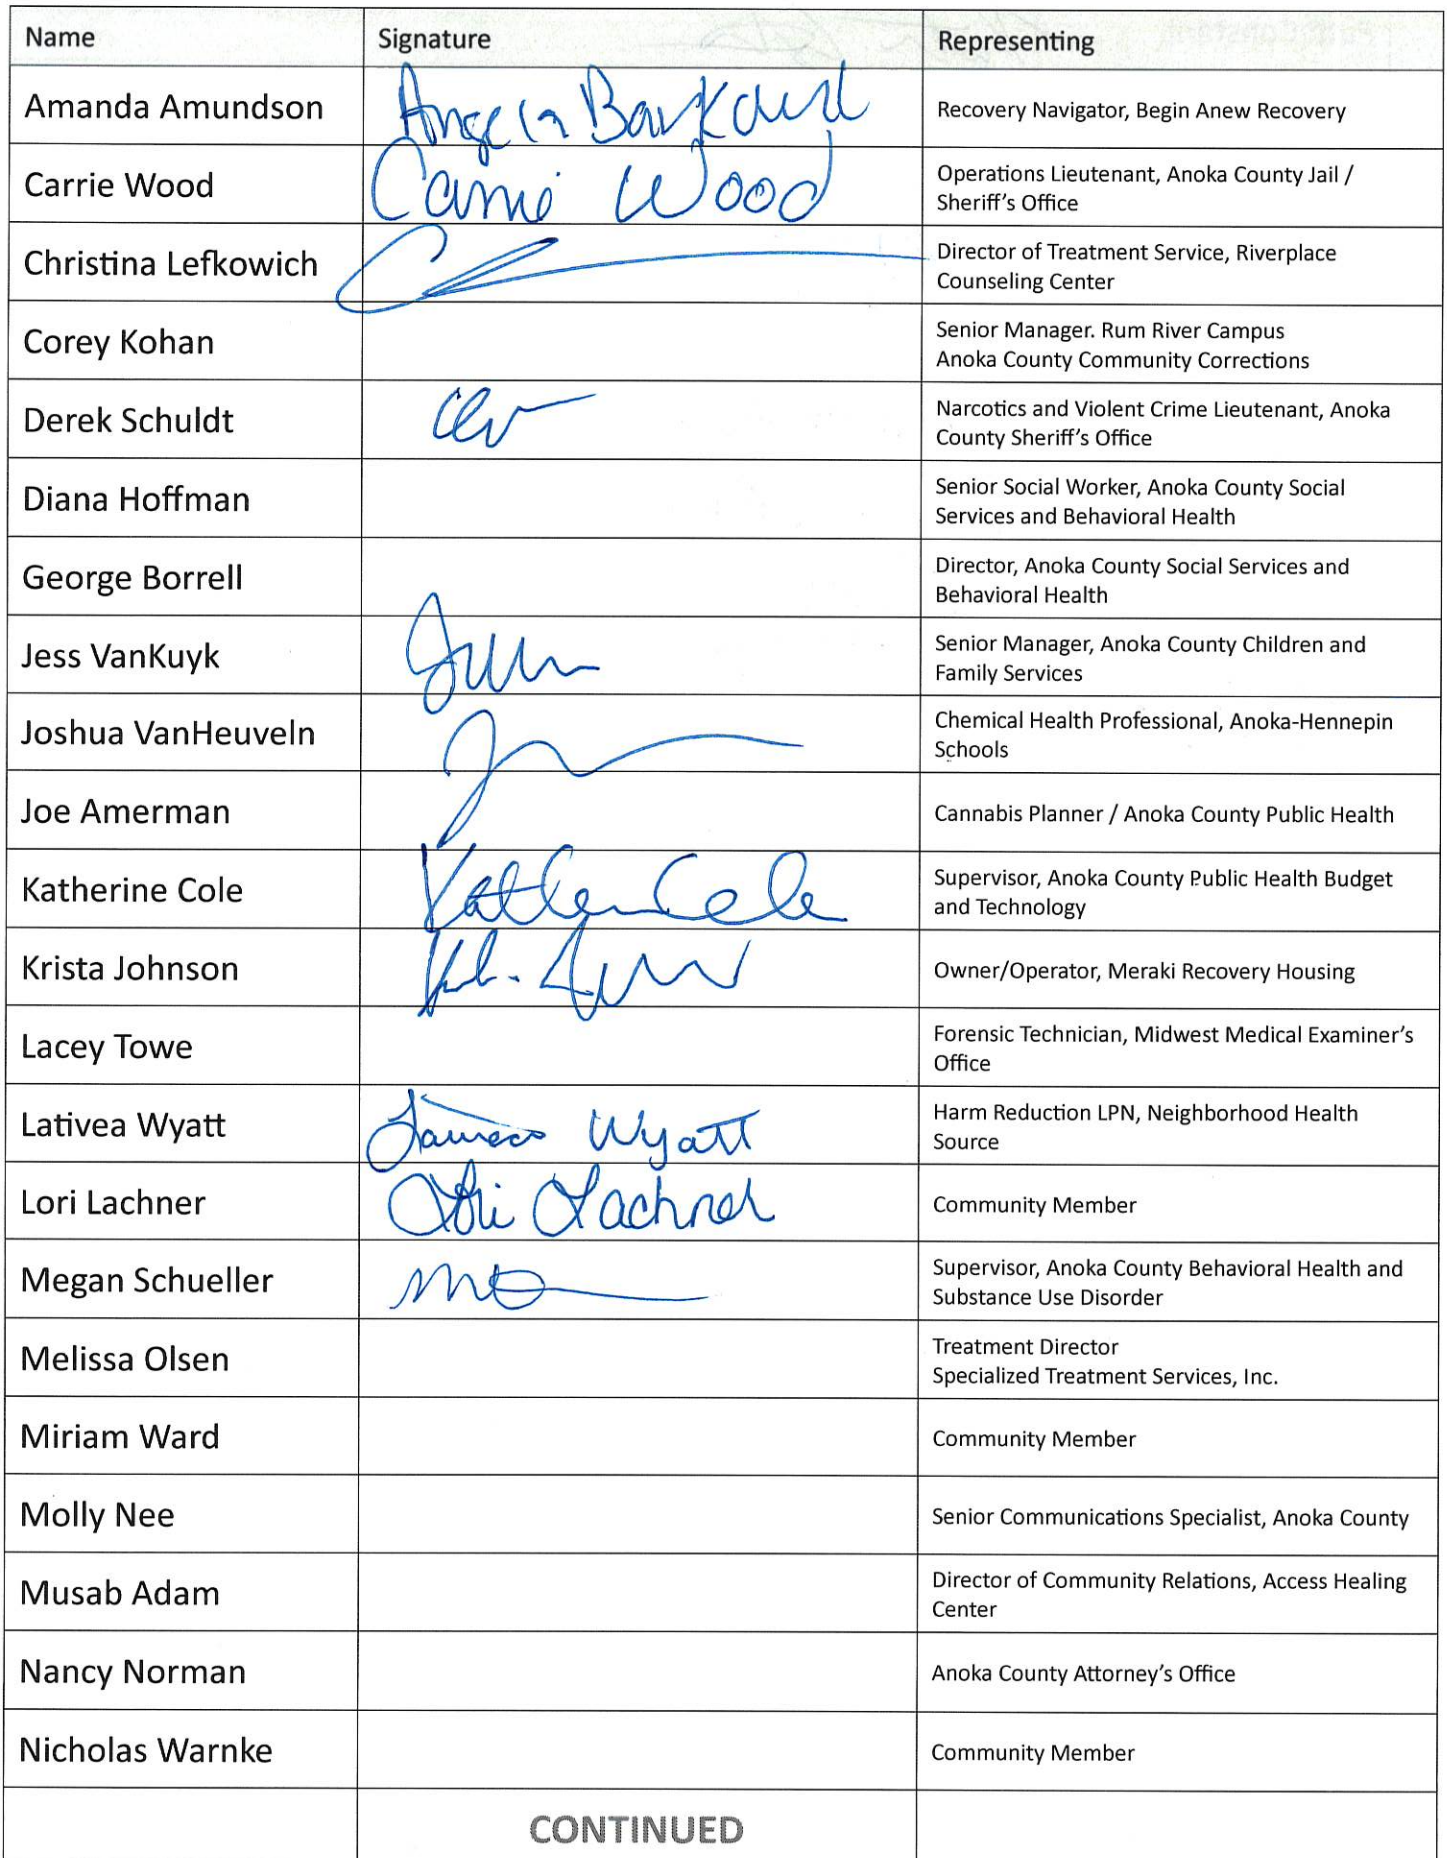 Name Signature Representing
Amanda Amundson Angela Recovery Navigator, Begin Anew Recovery
Carrie Wood Carrie Wood Operations Lieutenant, Anoka County Jail /
Sheriff's Office
Christina Lefkowich Director of Treatment Service, Riverplace
Counseling Center
Corey Kohan Senior Manager. Rum River Campus
Anoka County Community Corrections
Derek Schuldt Narcotics and Violent Crime Lieutenant, Anoka
County Sheriff's Office
Diana Hoffman Senior Social Worker, Anoka County Social
Services and Behavioral Health
George Borrell Director, Anoka County Social Services and
Behavioral Health
Jess VanKuyk Senior Manager, Anoka County Children and
Family Services
Joshua VanHeuveln Chemical Health Professional, Anoka-Hennepin
Schools
Joe Amerman Cannabis Planner / Anoka County Public Health
Katherine Cole Cole Supervisor, Anoka County Public Health Budget
and Technology
Krista Johnson Owner/Operator, Meraki Recovery Housing
Lacey Towe Forensic Technician, Midwest Medical Examiner's
Office
Lativea Wyatt Wyatt Harm Reduction LPN, Neighborhood Health
Source
Lori Lachner Lori Lachner Community Member
Megan Schueller Supervisor, Anoka County Behavioral Health and
Substance Use Disorder
Melissa Olsen Treatment Director
Specialized Treatment Services, Inc.
Miriam Ward Community Member
Molly Nee Senior Communications Specialist, Anoka County
Musab Adam Director of Community Relations, Access Healing
Center
Nancy Norman Anoka County Attorney's Office
Nicholas Warnke Community Member
CONTINUED